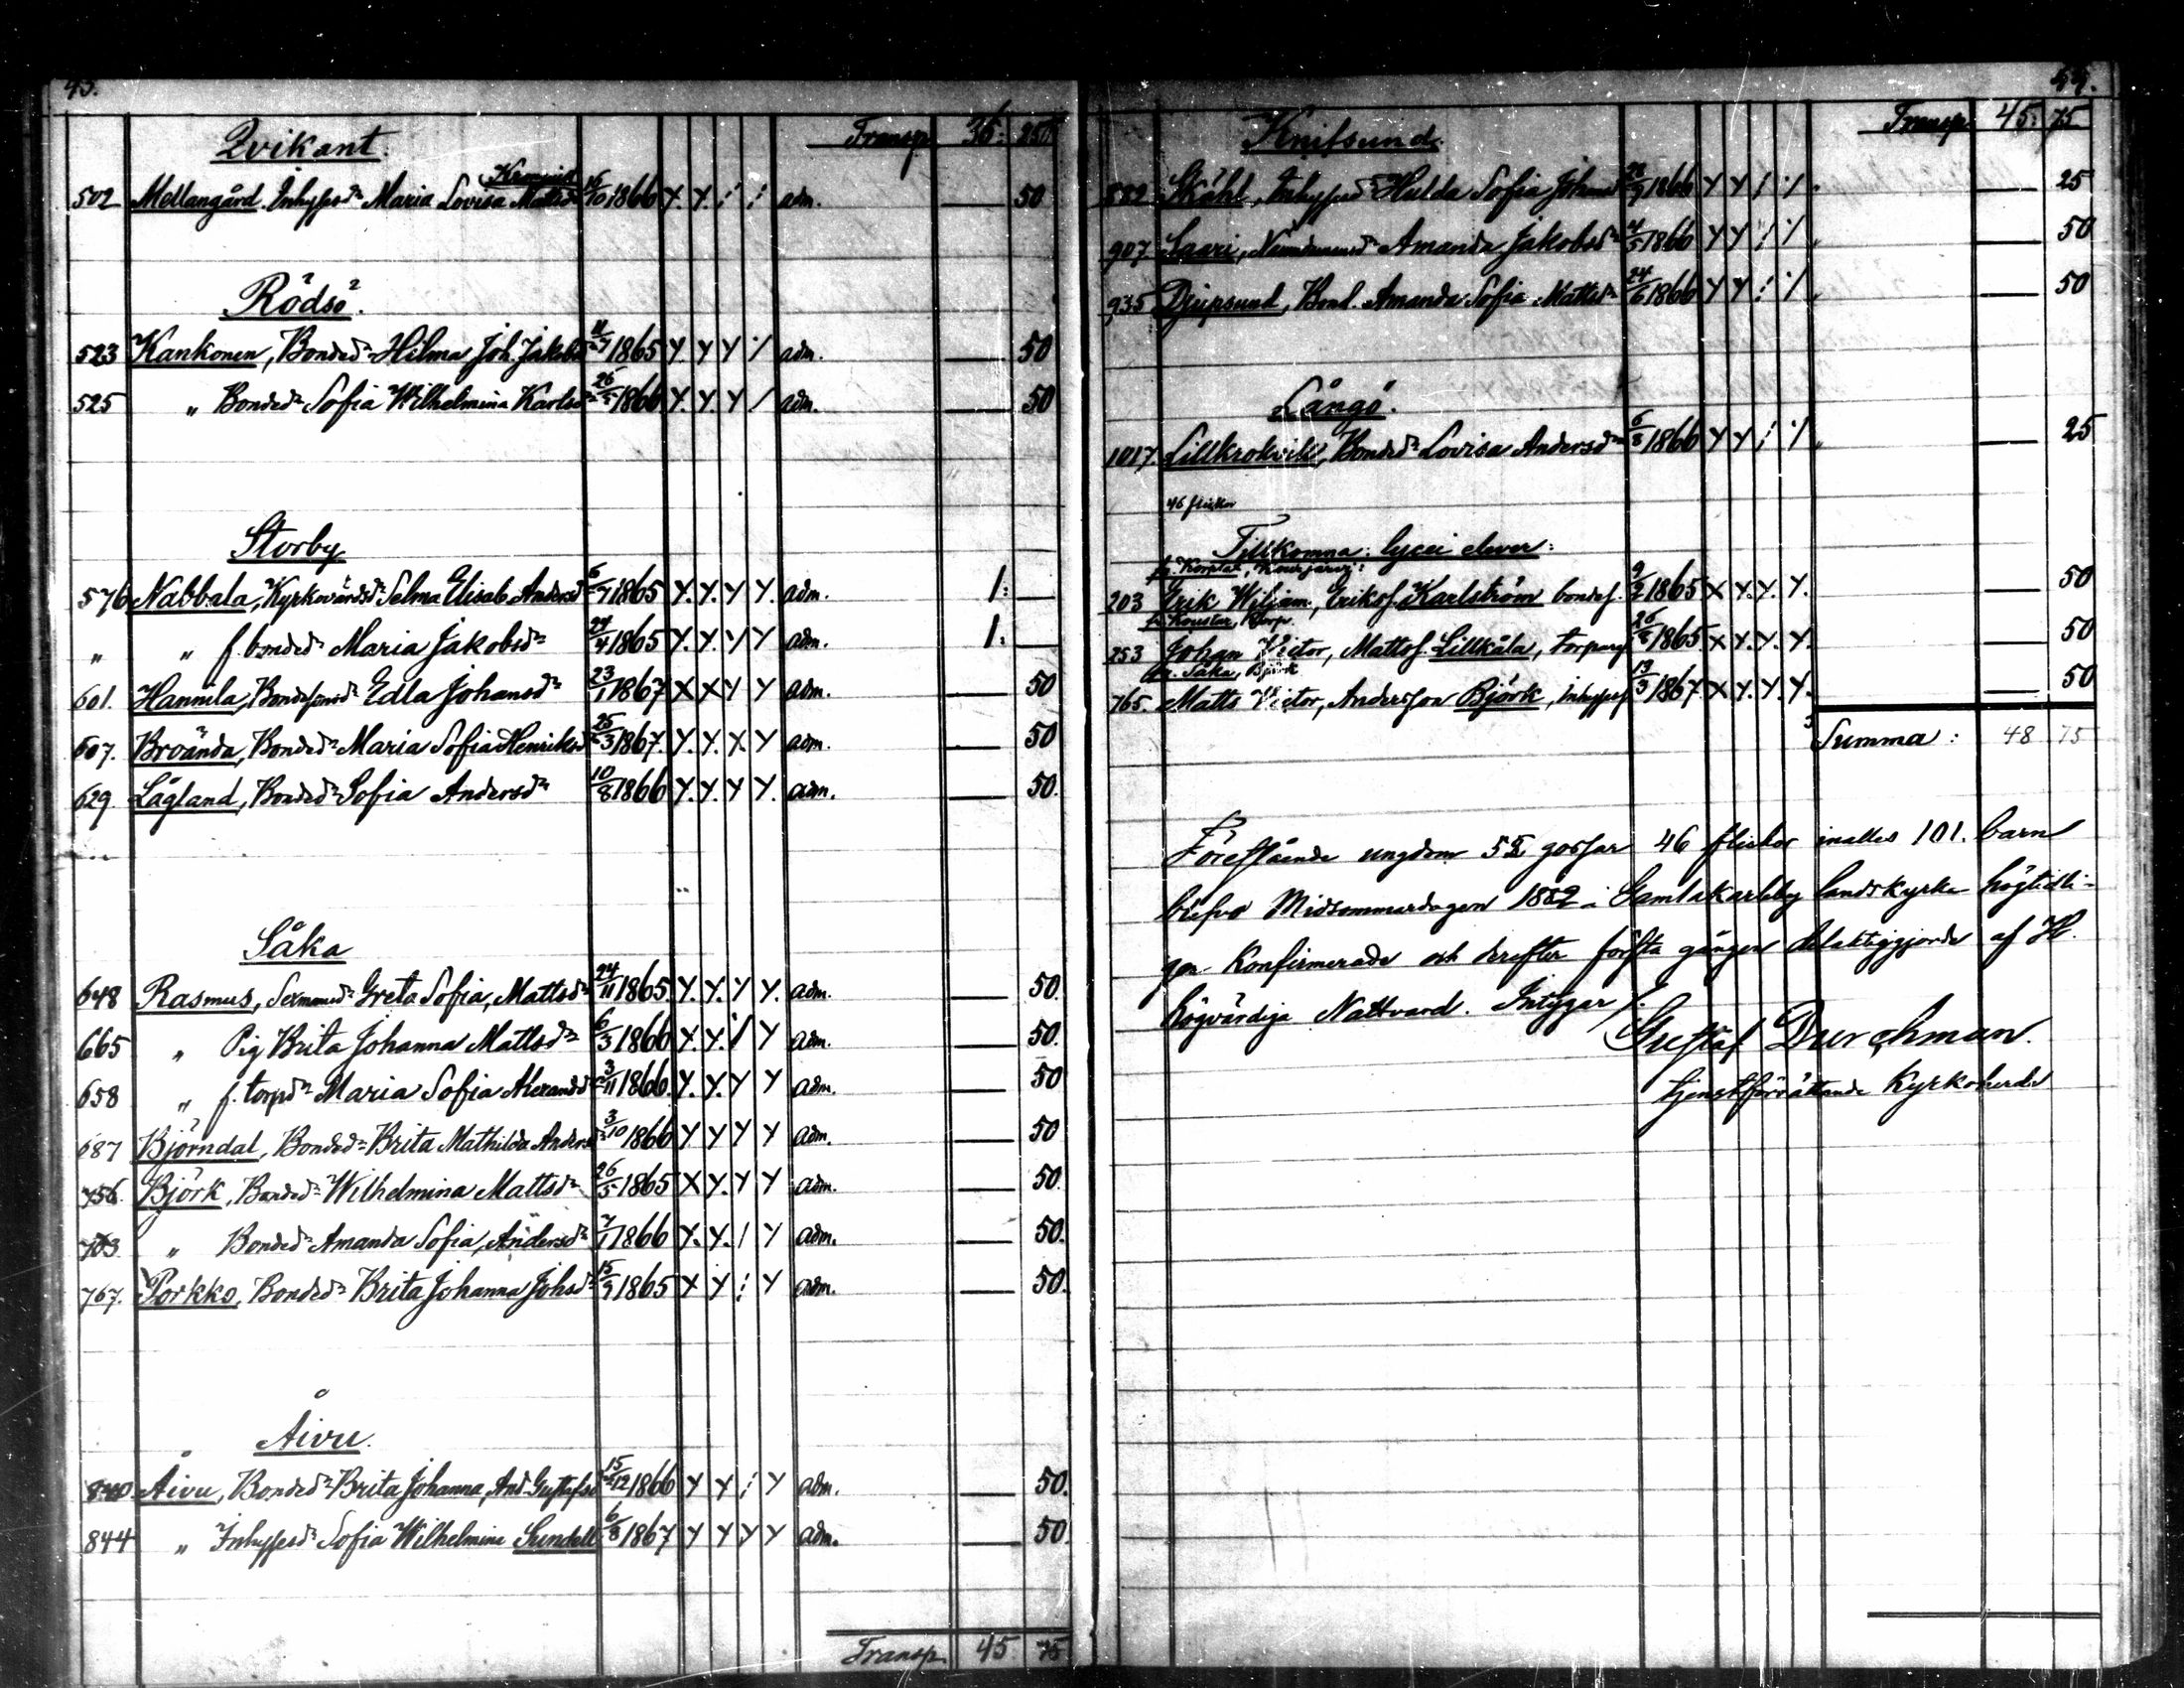 43.
Transp. 36: 25
Qvikant.
Kronqvist
502 Mellangård. Inhysesdr Maria Lovisa Mattsdr 16/10 1866 Y. Y. / / adm. — 50
Rödsö.
523 Kankonen, Bondedr Hilma Joh. Jakobsdr 11/7 1865 Y. Y. Y / adm. — 50
525 " Bondedr Sofia Wilhelmina Karlsdr 26/5 1866 Y. Y. Y / adm. — 50
Storby
576 Nabbala, Kyrkovärdsdr Selma Elisab. Andersdr 6/7 1865 Y. Y. Y. Y. adm. 1: —
" " f. bondedr Maria Jakobsdr 24/4 1865 Y. Y. Y Y adm. 1: —
601. Hannila, Bondesonsdr Edla Johansdr 23/1 1867 X X Y Y adm. 50
607. Broända, Bondedr Maria Sofia Henriksdr 25/3 1867. Y. Y. X Y adm. — 50
629. Lågland, Bondedr Sofia Andersdr 10/8 1866 Y. Y. Y Y. adm. — 50.
Såka
648 Rasmus, Sexmansdr Greta Sofia, Mattsdr 24/11 1865 Y. Y. Y Y. adm. — 50.
665 " Pig. Brita Johanna Mattsdr 6/3 1866 Y. Y. / Y adm. — 50.
658 " f. torpdr Maria Sofia Alexandsdr 3/11 1866. Y. Y. Y Y adm. — 50
687 Björndal, Bondedr Brita Mathilda Andersdr 3/10 1866 Y Y Y Y adm. — 50
756. Björk, Bondedr Wilhelmina Mattsdr 26/5 1865 X Y. Y Y adm. — 50.
763. " Bondedr Amanda Sofia, Andersdr 7/1 1866 Y. Y. / Y adm. — 50.
767. Porkko, Bondedr Brita Johanna Johsdr 15/9 1865 X Y / Y adm. — 50.
Åivu.
840 Åivu, Bondedr Brita Johanna, And. Gustafsdr 15/12 1866 Y Y / Y adm. — 50.
844 " Inhysesdr Sofia Wilhelmina Sundell 6/8 1867 Y Y Y Y adm. — 50.
Transp. 45 75
44.
Transp. 45: 75
Knifsund.
882 Ståhl, Inhysesdr Hulda Sofia Johansdr 20/9 1866 Y Y / / " — 25
907. Saari, Nämndemansdr Amanda Jakobsdr 4/5 1866 Y Y / / " — 50
935 Djupsund, Bond. Amanda Sofia Mattsdr 24/6 1866 Y Y / / " — 50
Långö.
1017. Lillkrokvik, Bondedr Lovisa Andersdr 6/8 1866 Y Y / / " — 25
46 flickor
Tillkomna: lycei elever:
fr. Korplax, Kourjärvi:
203 Erik Wiljam, Eriks. Karlström bondes. 9/2 1865 X Y. Y. Y. — 50
fr. Korp.
253 Johan Victor, Mattss. Lillkåla, torpars. 26/8 1865 X Y. Y. Y. — 50
fr. Såka, Björk
765. Matts Victor, Andersson Björk, inhysess. 13/3 1867. X Y. Y. Y. — 50
Summa: 48 75
Föreslående ungdom 55 gossar 46 flickor inalles 101. barn
blefvo Midsommardagen 1882 i Gamlakarleby landskyrka högtidli-
gen konfirmerade och derefter första gången delaktiggjorde af H.
högvärdiga Nattvard. Intygar /.
Gustaf Durchman.
tjenstförrättande Kyrkoherde